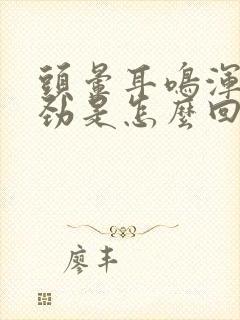 頭暈耳鳴渾
勁是怎麼回
廖丰